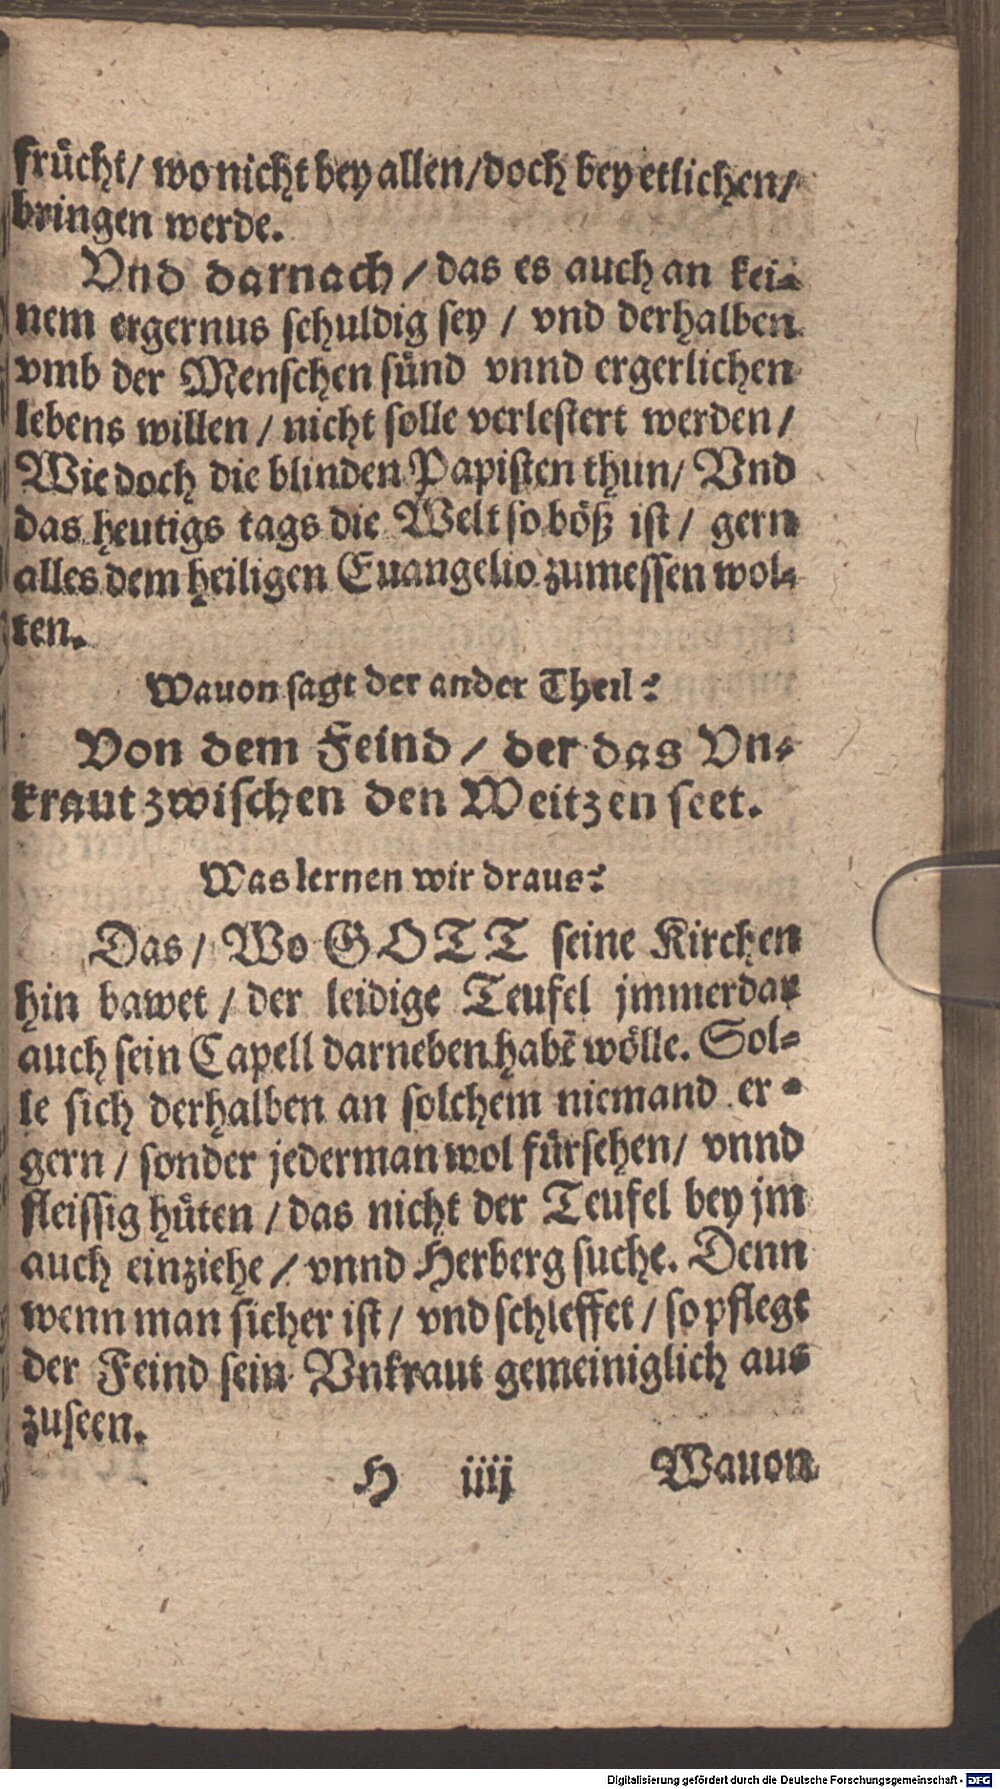 frücht/ wo nicht bey allen/ doch bey etlichen/
bringen werde.
Vnd darnach / das es auch an kei⸗
nem ergernus schuldig sey / vnd derhalben
vmb der Menschen sünd vnnd ergerlichen
lebens willen / nicht solle verlestert werden /
Wie doch die blinden Papisten thun/ Vnd
das heutigs tags die Welt so böß ist / gern
alles dem heiligen Euangelio zumessen wol⸗
ten.
Wauon sagt der ander Theil?
Von dem Feind / der das Vn⸗
kraut zwischen den Weitzen seet.
Was lernen wir draus?
Das / Wo GOTT seine Kirchen
hin bawet / der leidige Teufel jmmerdar
auch sein Capell darneben habē wölle. Sol⸗
le sich derhalben an solchem niemand er⸗
gern / sonder jederman wol fürsehen/ vnnd
fleissig hüten / das nicht der Teufel bey jm
auch einziehe / vnnd Herberg suche. Denn
wenn man sicher ist / vnd schleffet / so pflegt
der Feind sein Vnkraut gemeiniglich aus
zuseen.
H iiij Wauon
Digitalisierung gefördert durch die Deutsche Forschungsgemeinschaft - DFG